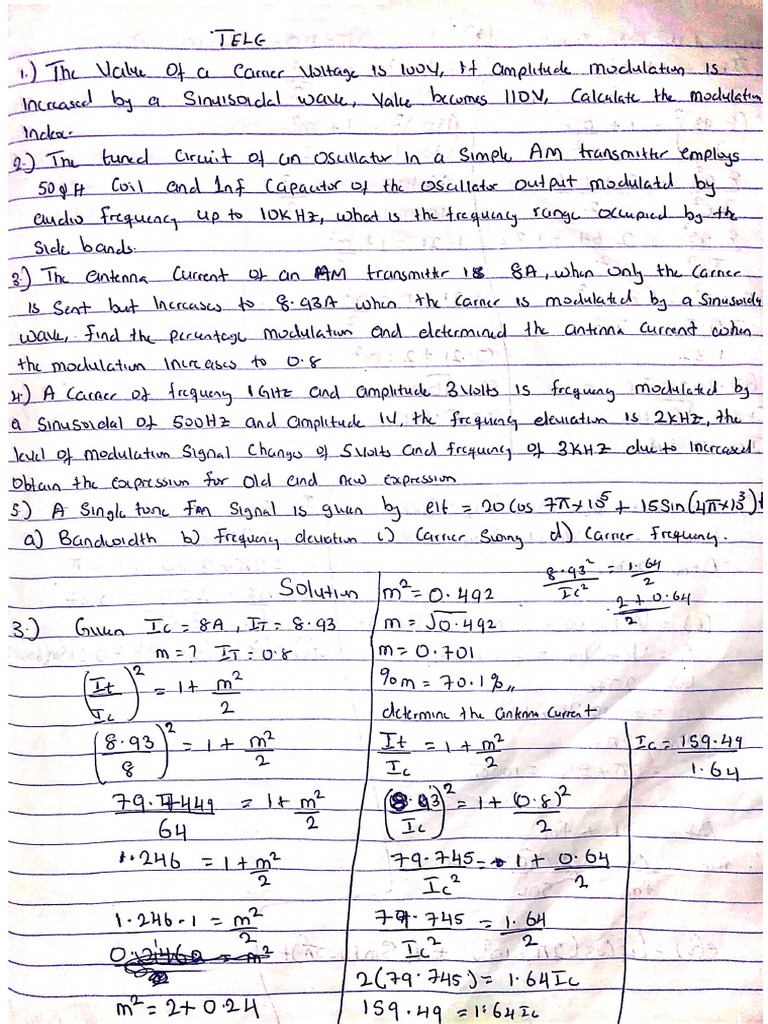 TELE
1.) The Value Of a Carrier Voltage is 100V, If amplitude modulation is
Increased by a Sinusoidal wave, Value becomes 110V, Calculate the modulation
Index.
2.) The tuned Circuit of an Oscillator in a Simple AM transmitter employs
50 H Coil and 1nf Capacitor of the oscillator output modulated by
audio frequency up to 10KHz, what is the frequency range occupied by the
Side bands.
3.) The antenna Current of an AM transmitter is 8A, when only the Carrier
is Sent but Increases to 8.93A when the Carrier is modulated by a Sinusoidal
wave, find the percentage modulation and determined the antenna Current when
the modulation Increases to 0.8
4.) A Carrier of frequency 1GHz and amplitude 3Volts is frequency modulated by
a Sinusoidal of 500Hz and amplitude 1V, the frequency deviation is 2KHz, the
level of modulation Signal Changes of 5Volts and frequency of 3KHz due to Increased
Obtain the expression for Old and new expression
5.) A Single tone Fm Signal is given by e(t = 20 Cos 7π×10⁵ + 15 Sin (4π×10³)t
a) Bandwidth b) frequency deviation c) Carrier Swing d) Carrier frequency.
Solution
3.) Given Ic = 8A, IT = 8.93
m = ? IT = 0.8
(It/Ic)² = 1 + m²/2
(8.93/8)² = 1 + m²/2
79.7449/64 = 1 + m²/2
1.246 = 1 + m²/2
1.246 - 1 = m²/2
m² = 2 + 0.24
m² = 0.492
m = √0.492
m = 0.701
%m = 70.1%,,
determine the antenna Current
It/Ic = 1 + m²/2
(8.93/Ic)² = 1 + (0.8)²/2
79.745/Ic² = 1 + 0.64/2
79.745/Ic² = 1.64/2
2(79.745) = 1.64Ic
159.49 = 1.64Ic
8.93²/Ic² = 1.64/2
2 + 0.64/2
Ic = 159.49/1.64